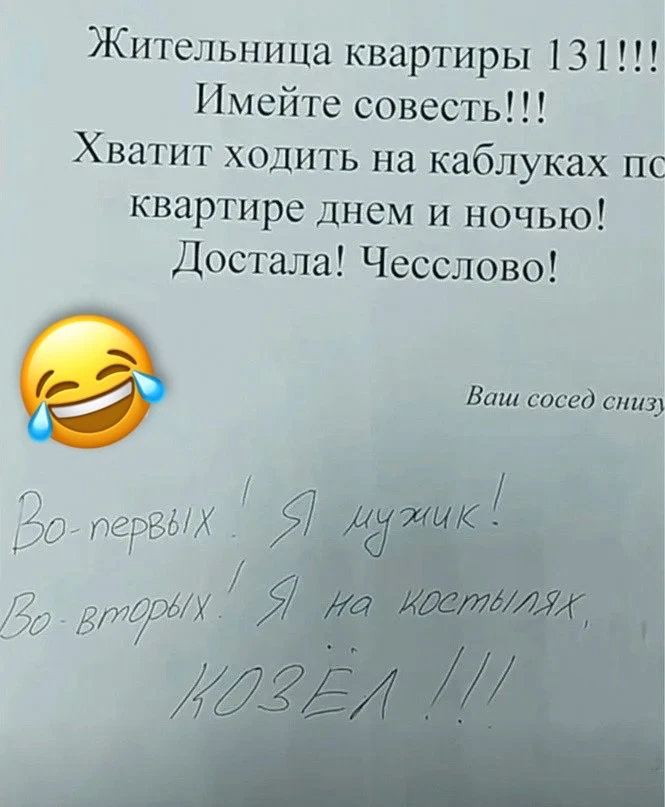 Жительница квартиры 131!!!
Имейте совесть!!!
Хватит ходить на каблуках по
квартире днем и ночью!
Достала! Чесслово!
Ваш сосед снизу
Во-первых! Я мужик!
Во-вторых! Я на костылях,
КОЗЁЛ!!!